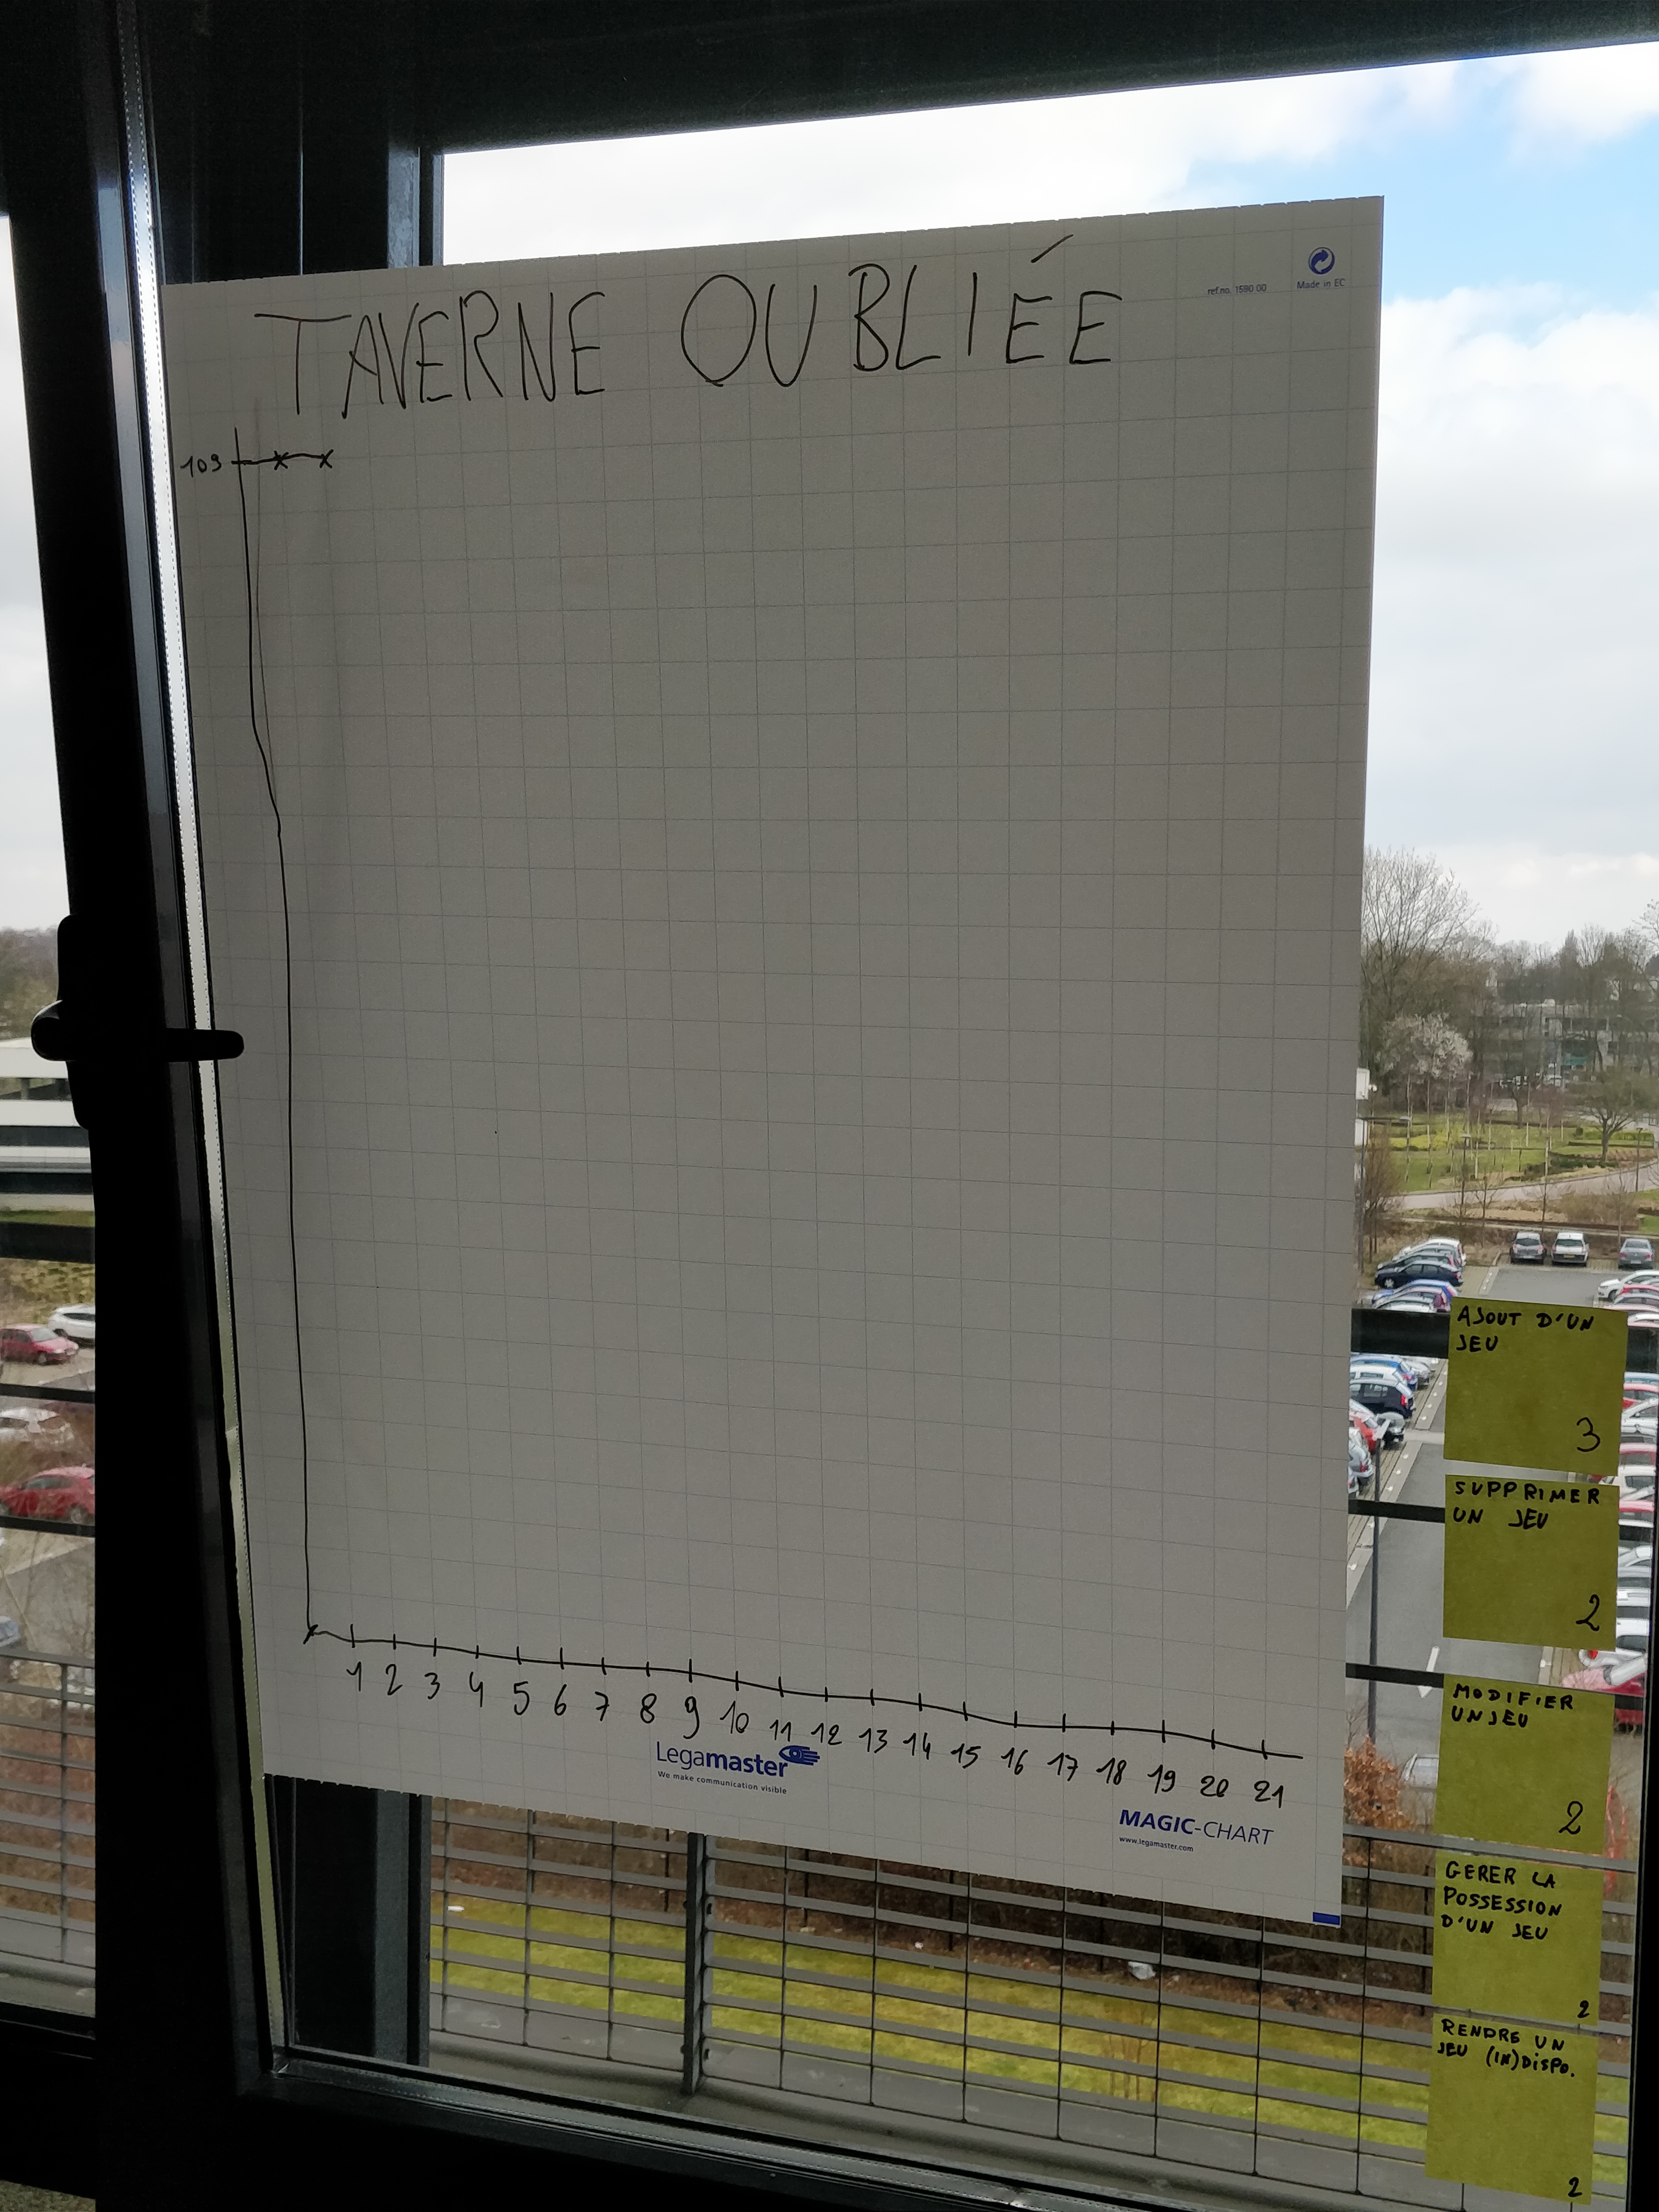 TAVERNE OUBLIÉE
ref.no. 1590 00
Made in EC
109
1 2 3 4 5 6 7 8 9 10 11 12 13 14 15 16 17 18 19 20 21
Legamaster
We make communication visible
MAGIC-CHART
www.legamaster.com
AJOUT D'UN
JEU
3
SUPPRIMER
UN JEU
2
MODIFIER
UN JEU
2
GERER LA
POSSESSION
D'UN JEU
2
RENDRE UN
JEU (IN)DISPO.
2